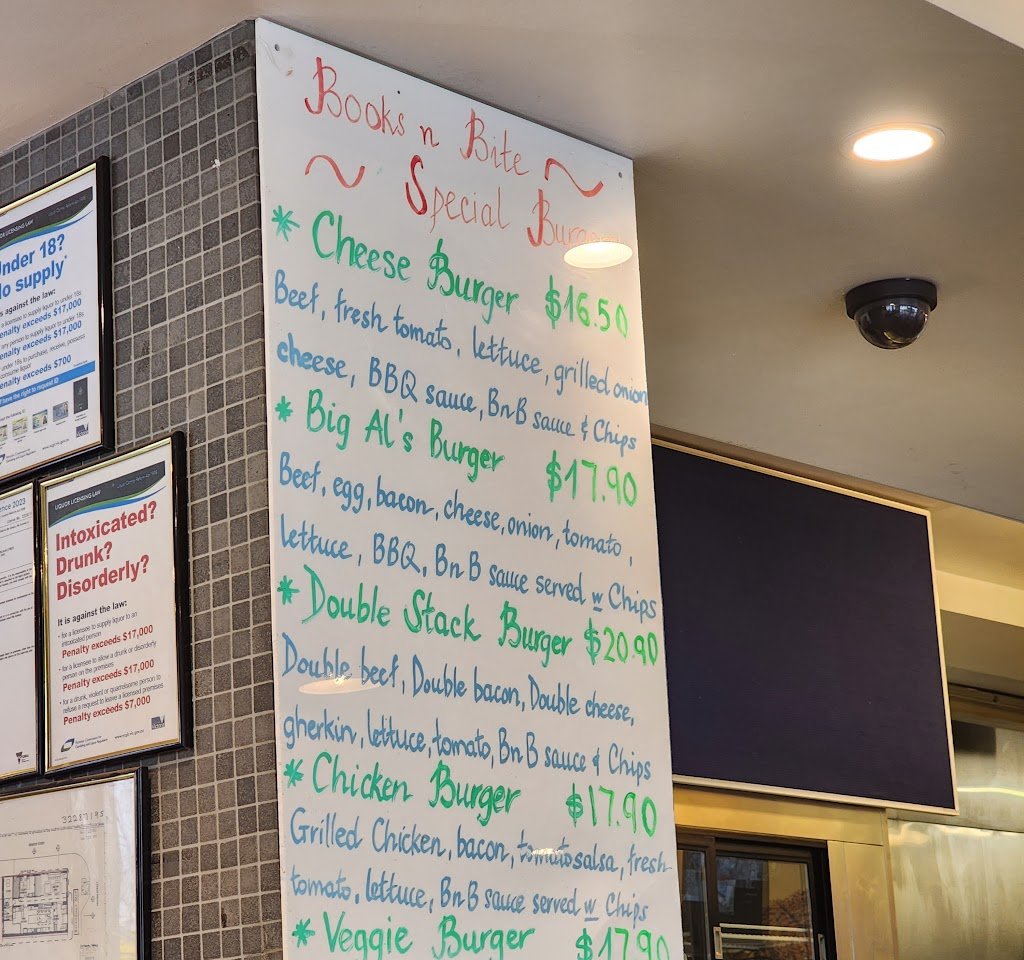 Books n Bite
~ Special Burgers ~
* Cheese Burger $16.50
Beef, fresh tomato, lettuce, grilled onion
cheese, BBQ sauce, BnB sauce & Chips
* Big Al's Burger $17.90
Beef, egg, bacon, cheese, onion, tomato,
lettuce, BBQ, BnB sauce served w Chips
* Double Stack Burger $20.90
Double beef, Double bacon, Double cheese,
gherkin, lettuce, tomato, BnB sauce & Chips
* Chicken Burger $17.90
Grilled Chicken, bacon, tomato salsa, fresh
tomato, lettuce, BnB sauce served w Chips
* Veggie Burger $17.90
LICENSING LAW
Under 18?
No supply*
is against the law:
a licensee to supply liquor to under 18s
Penalty exceeds $17,000
any person to supply liquor to under 18s
Penalty exceeds $17,000
under 18s to purchase, receive, possess
consume liquor
Penalty exceeds $700
have the right to request ID
LIQUOR LICENSING LAW
Intoxicated?
Drunk?
Disorderly?
It is against the law:
• for a licensee to supply liquor to an
intoxicated person
Penalty exceeds $17,000
• for a licensee to allow a drunk or disorderly
person on the premises
Penalty exceeds $17,000
• for a drunk, violent or quarrelsome person to
refuse to leave a licensed premises
Penalty exceeds $7,000
2023
32287195